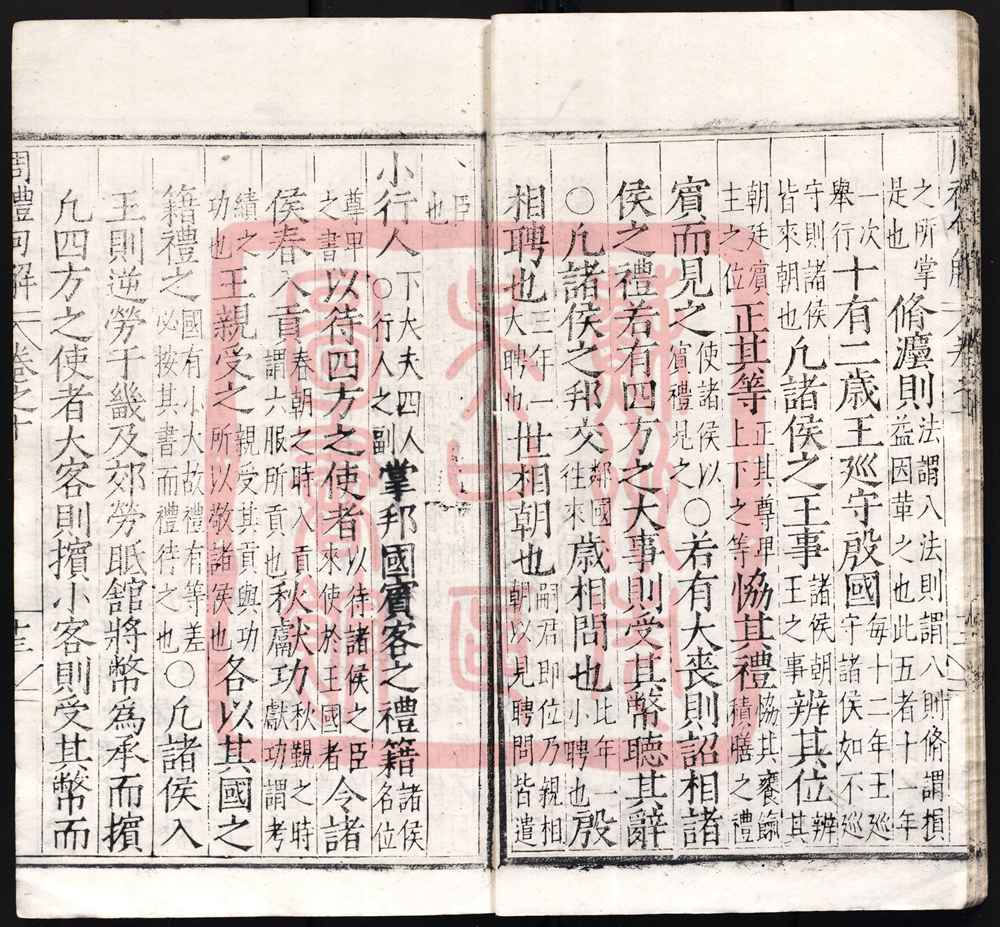 之所掌是也脩灋則法謂八法則謂八則脩謂損益因革之也此五者十一年
一次舉行十有二歲王廵守殷國每十二年王廵守諸侯如不廵
守則諸侯皆來朝也凡諸侯之王事諸侯朝王之事辨其位辨其
朝廷賓主之位正其等正其尊卑上下之等恊其禮恊其饔餼積膳之禮
賓而見之使諸侯以賓禮見之○若有大喪則詔相諸
侯之禮若有四方之大事則受其幣聽其辭
○凡諸侯之邦交鄰國往來歲相問也比年一小聘也殷
相聘也三年一大聘也世相朝也嗣君即位乃親相朝以見聘問皆遣
臣也
小行人下大夫四人○行人之副掌邦國賓客之禮籍諸侯名位
尊卑之書以待四方之使者以待諸侯之臣來使於王國者令諸
侯春入貢春朝之時入貢謂六服所貢也秋獻功秋覲之時獻功謂考
績之功也王親受之親受其貢與功所以敬諸侯也各以其國之
籍禮之國有小大故禮有等差必按其書而禮待之也○凡諸侯入
王則逆勞于畿及郊勞眂館將幣爲承而擯
凡四方之使者大客則擯小客則受其幣而
周禮句解 卷之十 十三